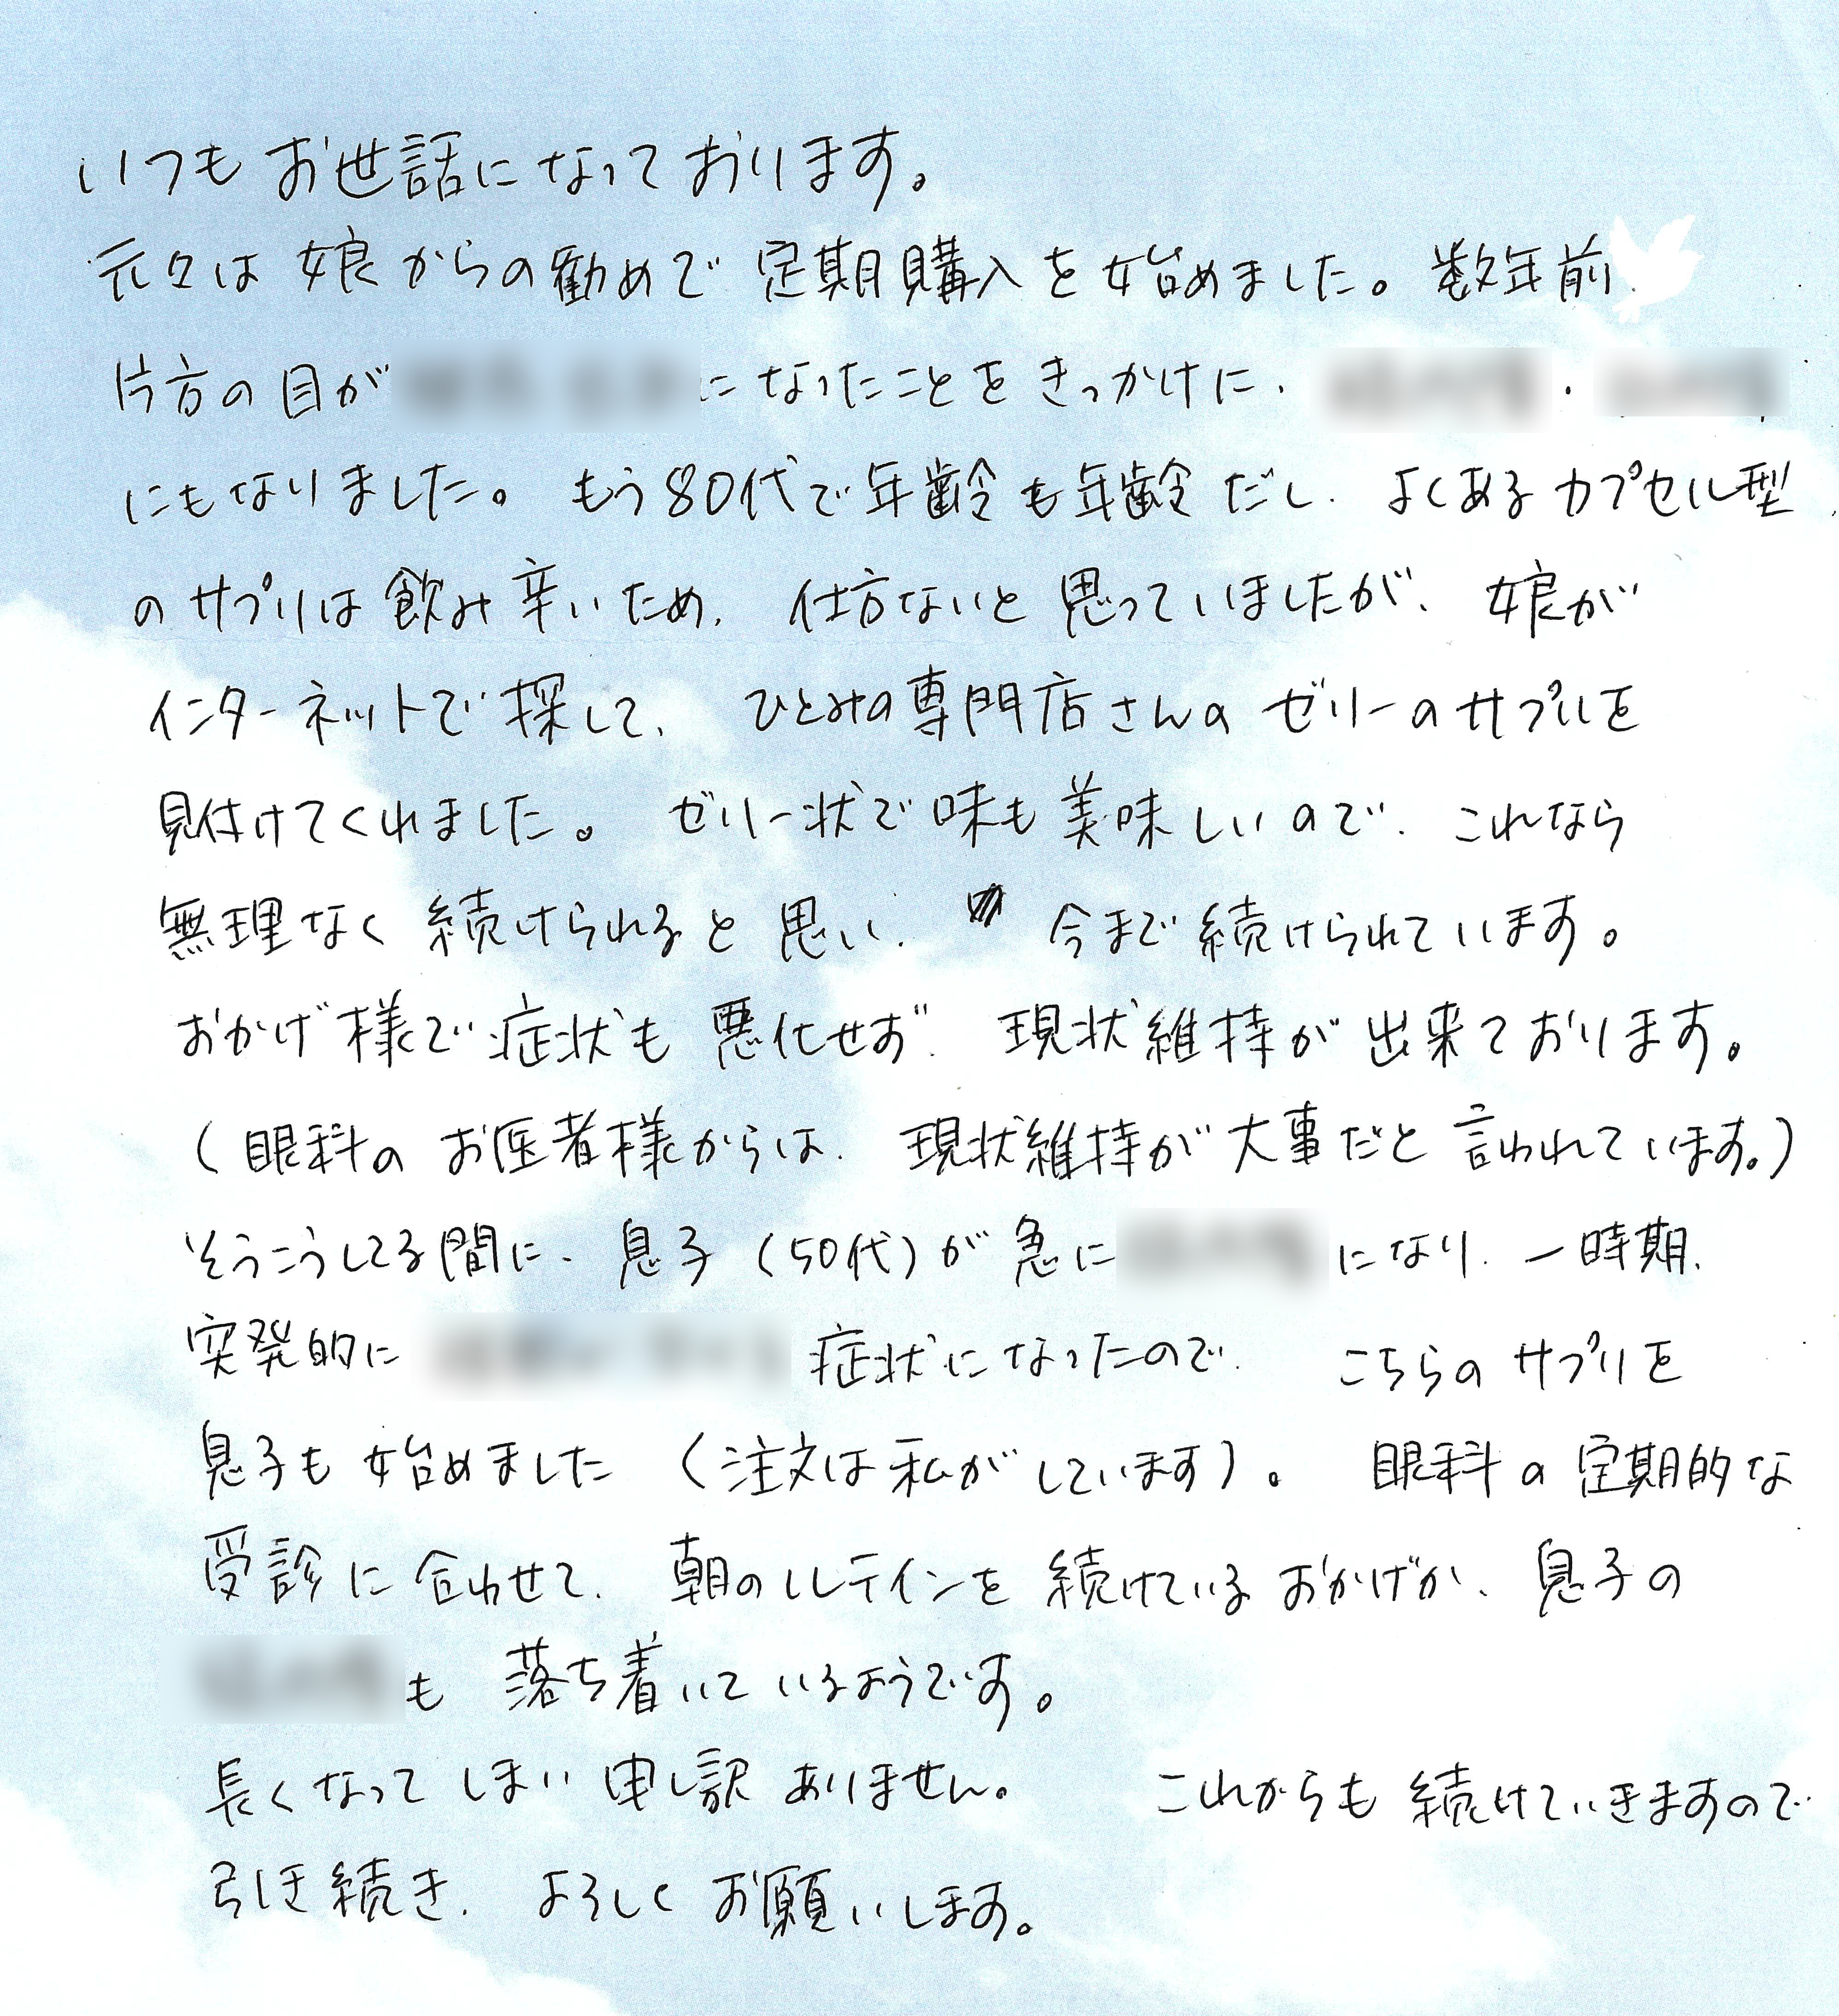 いつもお世話になっております。
元々は娘からの勧めで定期購入を始めました。数年前
片方の目が になったことをきっかけに、 ・
にもなりました。もう80代で年齢も年齢だし、よくあるカプセル型
のサプリは飲み辛いため、仕方ないと思っていましたが、娘が
インターネットで探して、ひとみの専門店さんのゼリーのサプリを
見付けてくれました。ゼリー状で味も美味しいので、これなら
無理なく続けられると思い、今まで続けられています。
おかげ様で症状も悪化せず、現状維持が出来ております。
(眼科のお医者様からは、現状維持が大事だと言われています。)
そうこうしてる間に、息子(50代)が急に になり、一時期、
突発的に 症状になったので、こちらのサプリを
息子も始めました(注文は私がしています)。眼科の定期的な
受診に合わせて、朝のルテインを続けているおかげか、息子の
も落ち着いているようです。
長くなってしまい申し訳ありません。これからも続けていきますので
引き続き、よろしくお願いします。